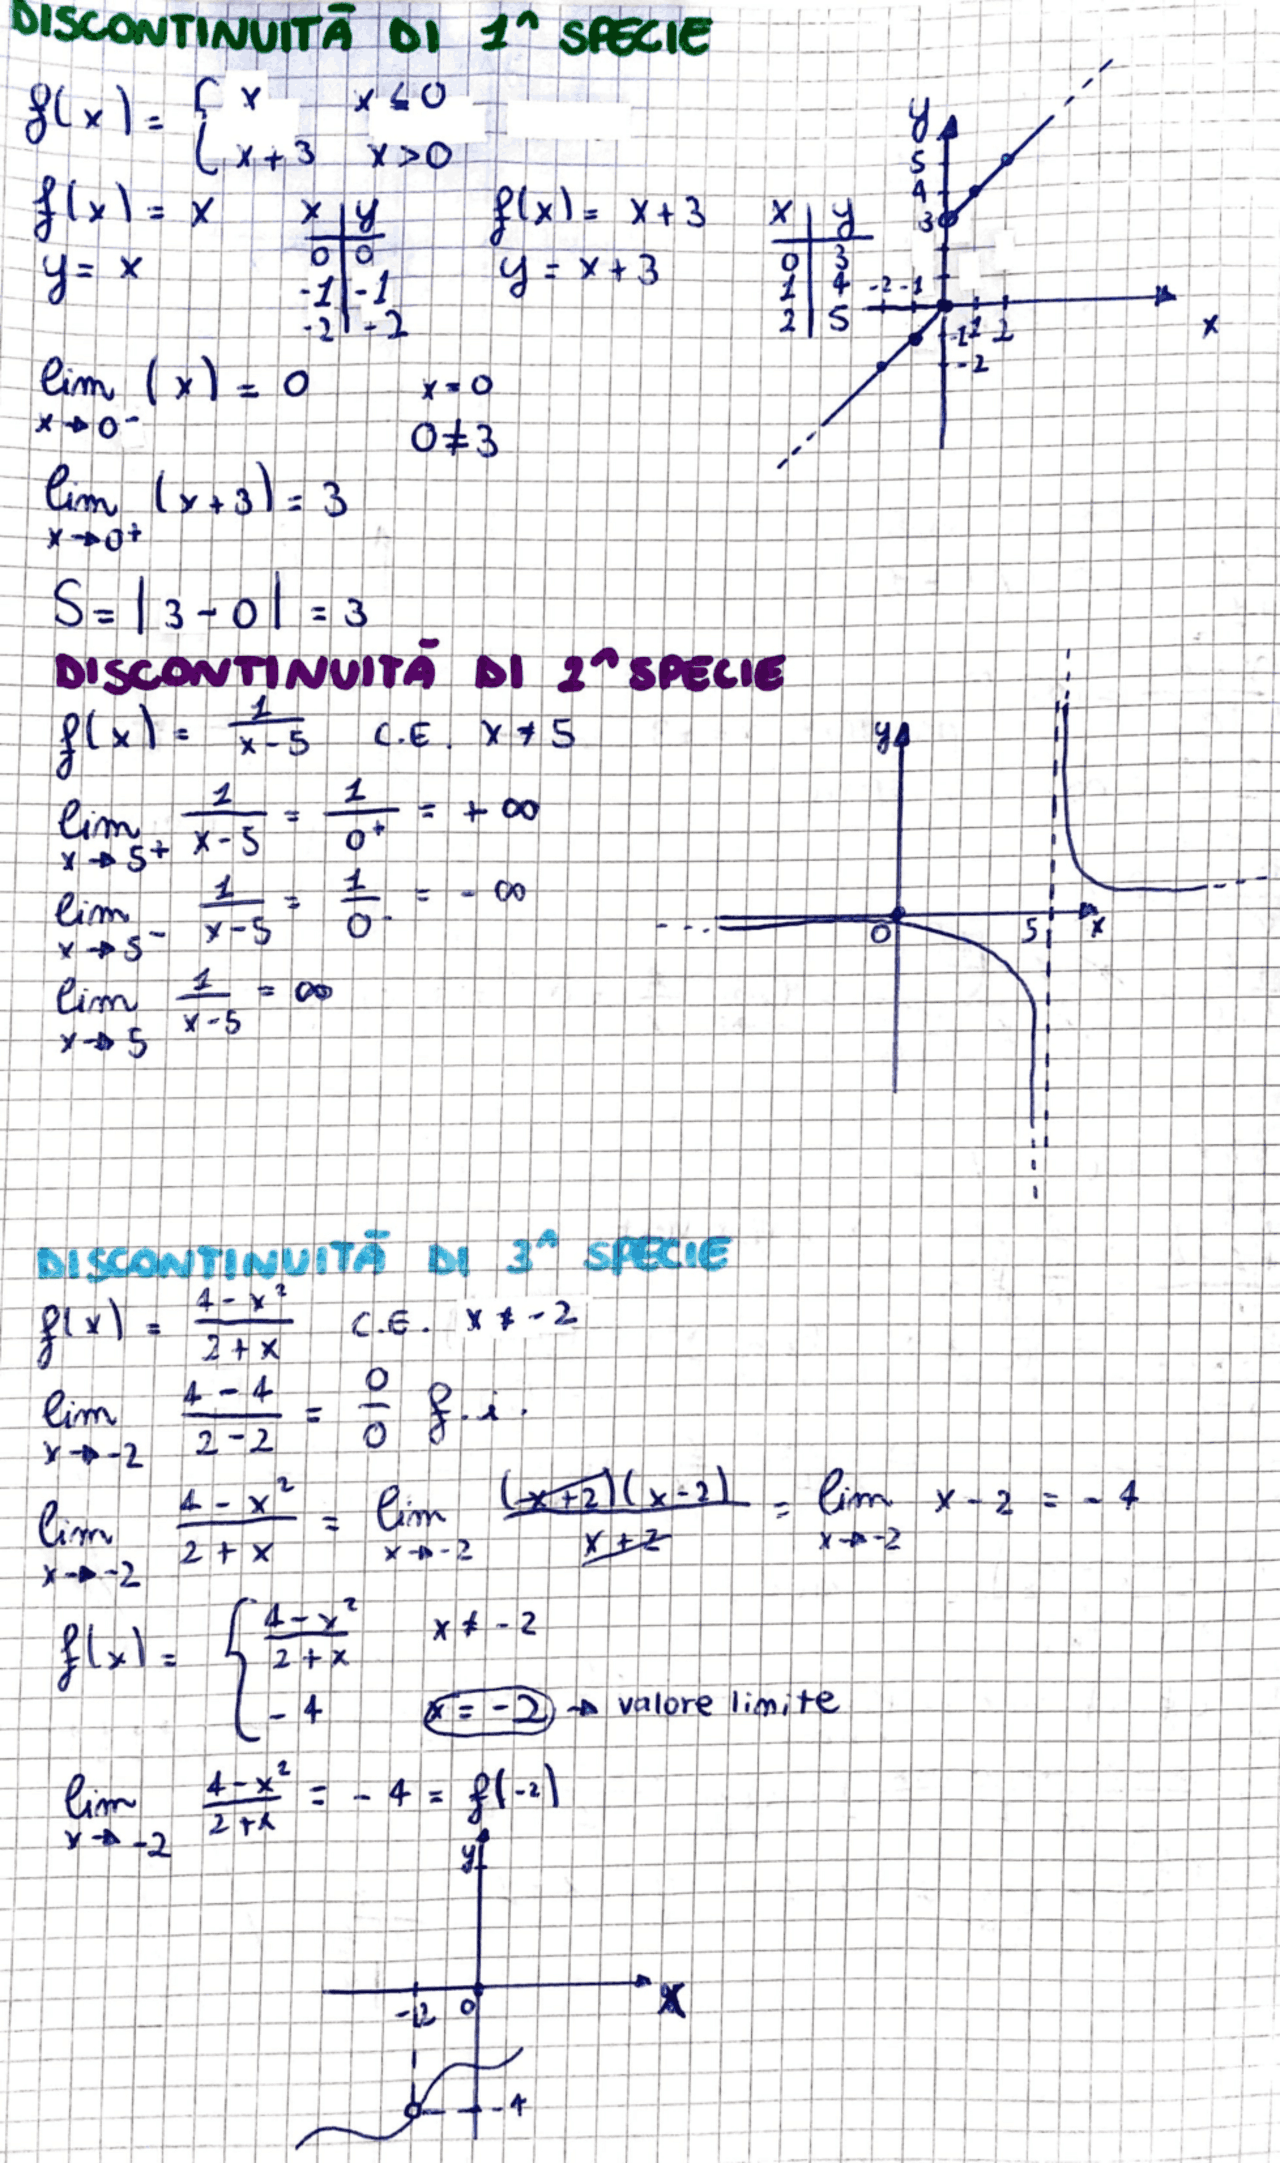 DISCONTINUITÀ DI 1^ SPECIE
f(x) = { x x ≤ 0
x+3 x > 0
f(x) = x x | y f(x) = x+3 x | y
y = x 0 | 0 y = x+3 0 | 3
-1 | -1 1 | 4
-2 | -2 2 | 5
y
5
4
3
-2 -1 1 2
-1
-2
x
lim (x) = 0 x = 0
x→0⁻ 0 ≠ 3
lim (x+3) = 3
x→0⁺
S = |3 - 0| = 3
DISCONTINUITÀ DI 2^ SPECIE
f(x) = 1/(x-5) C.E. x ≠ 5
lim 1/(x-5) = 1/0⁺ = + ∞
x→5⁺
lim 1/(x-5) = 1/0⁻ = - ∞
x→5⁻
lim 1/(x-5) = ∞
x→5
y
0 5 x
DISCONTINUITÀ DI 3^ SPECIE
f(x) = (4-x²)/(2+x) C.E. x ≠ -2
lim (4-4)/(2-2) = 0/0 f.i.
x→-2
lim (4-x²)/(2+x) = lim (x+2)(x-2)/(x+2) = lim x-2 = -4
x→-2 x→-2 x→-2
f(x) = { (4-x²)/(2+x) x ≠ -2
-4 x = -2 → valore limite
lim (4-x²)/(2+x) = -4 = f(-2)
x→-2
y
-2 0 x
-4